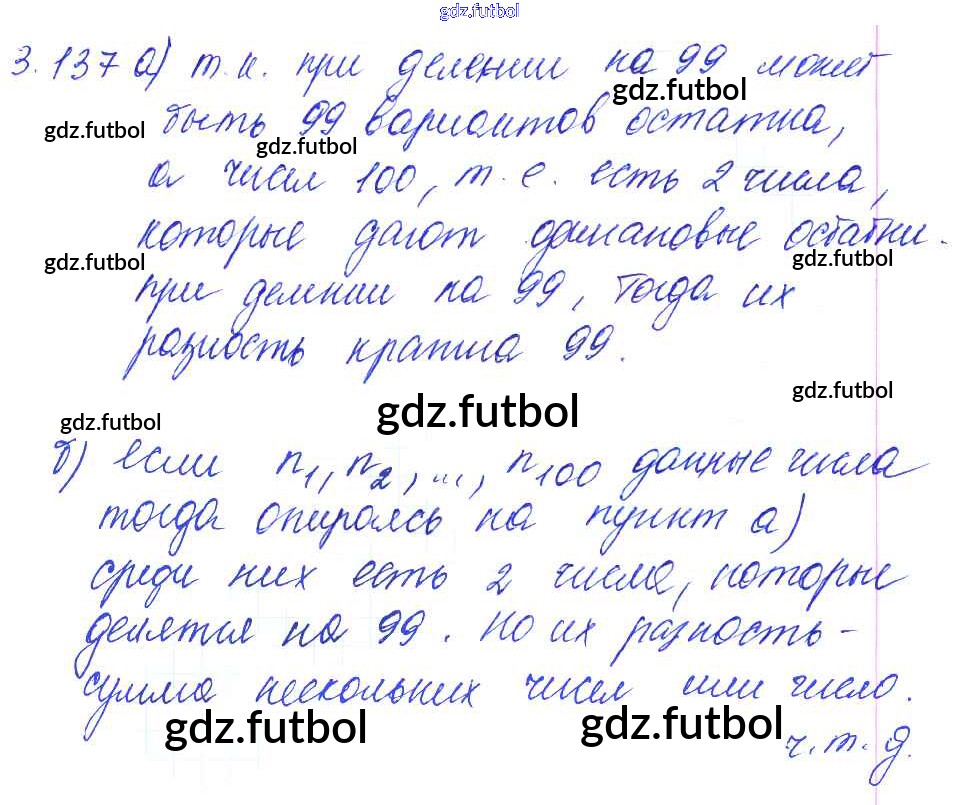 gdz.futbol
3.137 а) т.к. при делении на 99 может
gdz.futbol
gdz.futbol
быть 99 вариантов остатка,
gdz.futbol
а чисел 100, т.е. есть 2 числа,
которые дают одинаковые остатки
gdz.futbol
gdz.futbol
при делении на 99, тогда их
разность кратна 99.
gdz.futbol
gdz.futbol
gdz.futbol
б) если n1, n2, ..., n100 данные числа
тогда опираясь на пункт а)
среди них есть 2 числа, которые
делятся на 99. Но их разность-
сумма нескольких чисел или число.
gdz.futbol
gdz.futbol
ч.т.д.